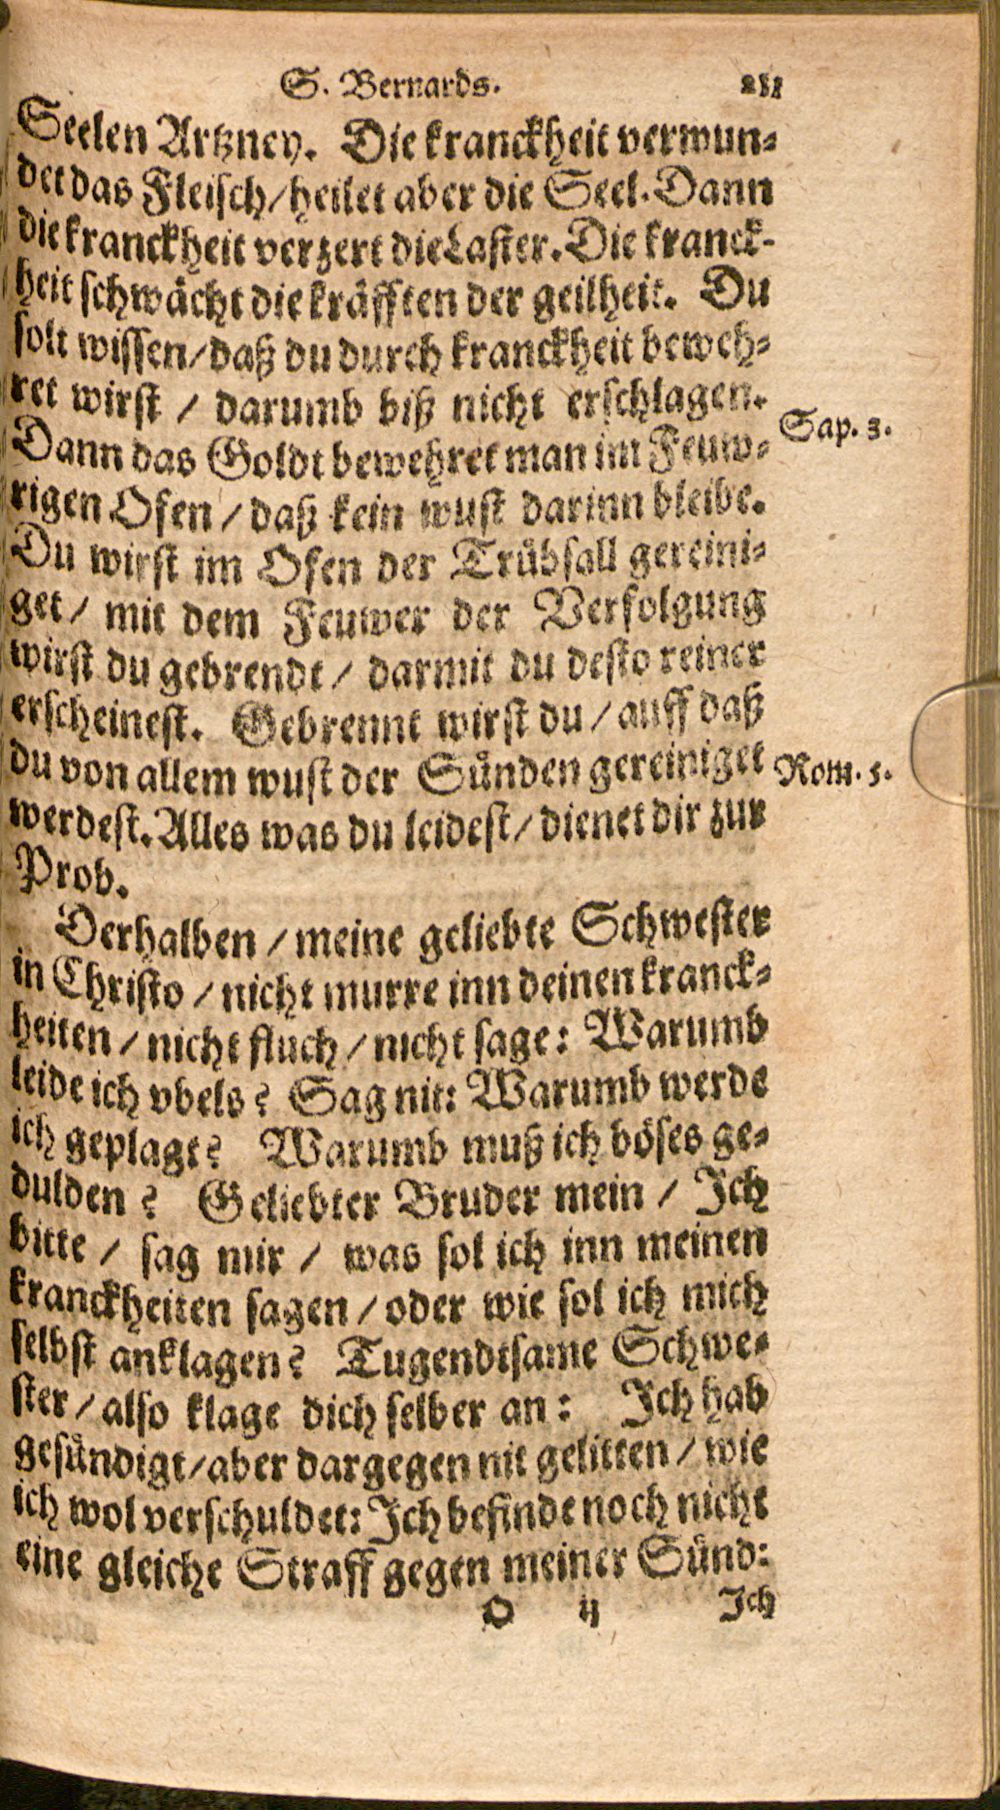 S. Bernards. 211
Seelen Artzney. Die kranckheit verwun-
det das Fleisch / heilet aber die Seel. Dann
die kranckheit verzert die Laster. Die kranck-
heit schwächt die kräfften der geilheit. Du
solt wissen / daß du durch kranckheit beweh-
ret wirst / darumb biß nicht erschlagen.
Dann das Goldt bewehret man im Feuw-
Sap. 3.
rigen Ofen / daß kein wust darinn bleibe.
Du wirst im Ofen der Trübsall gereini-
get / mit dem Feuwer der Verfolgung
wirst du gebrendt / darmit du desto reiner
erscheinest. Gebrennt wirst du / auff daß
du von allem wust der Sünden gereiniget
Rom. 5.
werdest. Alles was du leidest / dienet dir zur
Prob.
Derhalben / meine geliebte Schwester
in Christo / nicht murre inn deinen kranck-
heiten / nicht fluch / nicht sage: Warumb
leide ich vbels? Sag nit: Warumb werde
ich geplagt? Warumb muß ich böses ge-
dulden? Geliebter Bruder mein / Ich
bitte / sag mir / was sol ich inn meinen
kranckheiten sagen / oder wie sol ich mich
selbst anklagen? Tugendtsame Schwe-
ster / also klage dich selber an: Ich hab
gesündigt / aber dargegen nit gelitten / wie
ich wol verschuldet: Ich befinde noch nicht
eine gleiche Straff gegen meiner Sünd:
O ij Ich